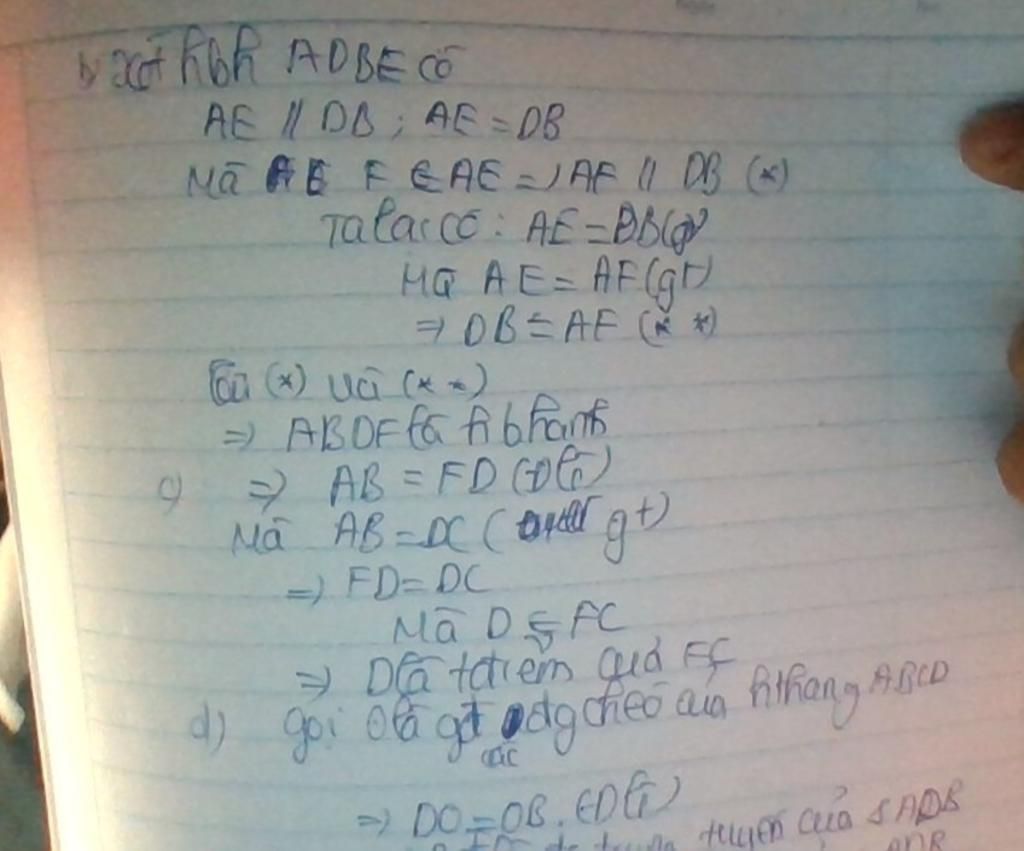 b, xét hbh ADBE có
AE // DB ; AE = DB
Mà F ∈ AE => AF // DB (*)
Ta lại có : AE = DB (gt)
Mà AE = AF (gt)
=> DB = AF (* *)
Từ (*) và (* *)
=> ABDF là hbhành
c) => AB = FD (Đlí)
Mà AB = DC ( gt)
=> FD = DC
Mà D ∈ FC
=> D là tđiểm của FC
d) gọi O là gđ các đg chéo của hthang ABCD
=> DO = OB. (Đlí)
tuyến của ADB